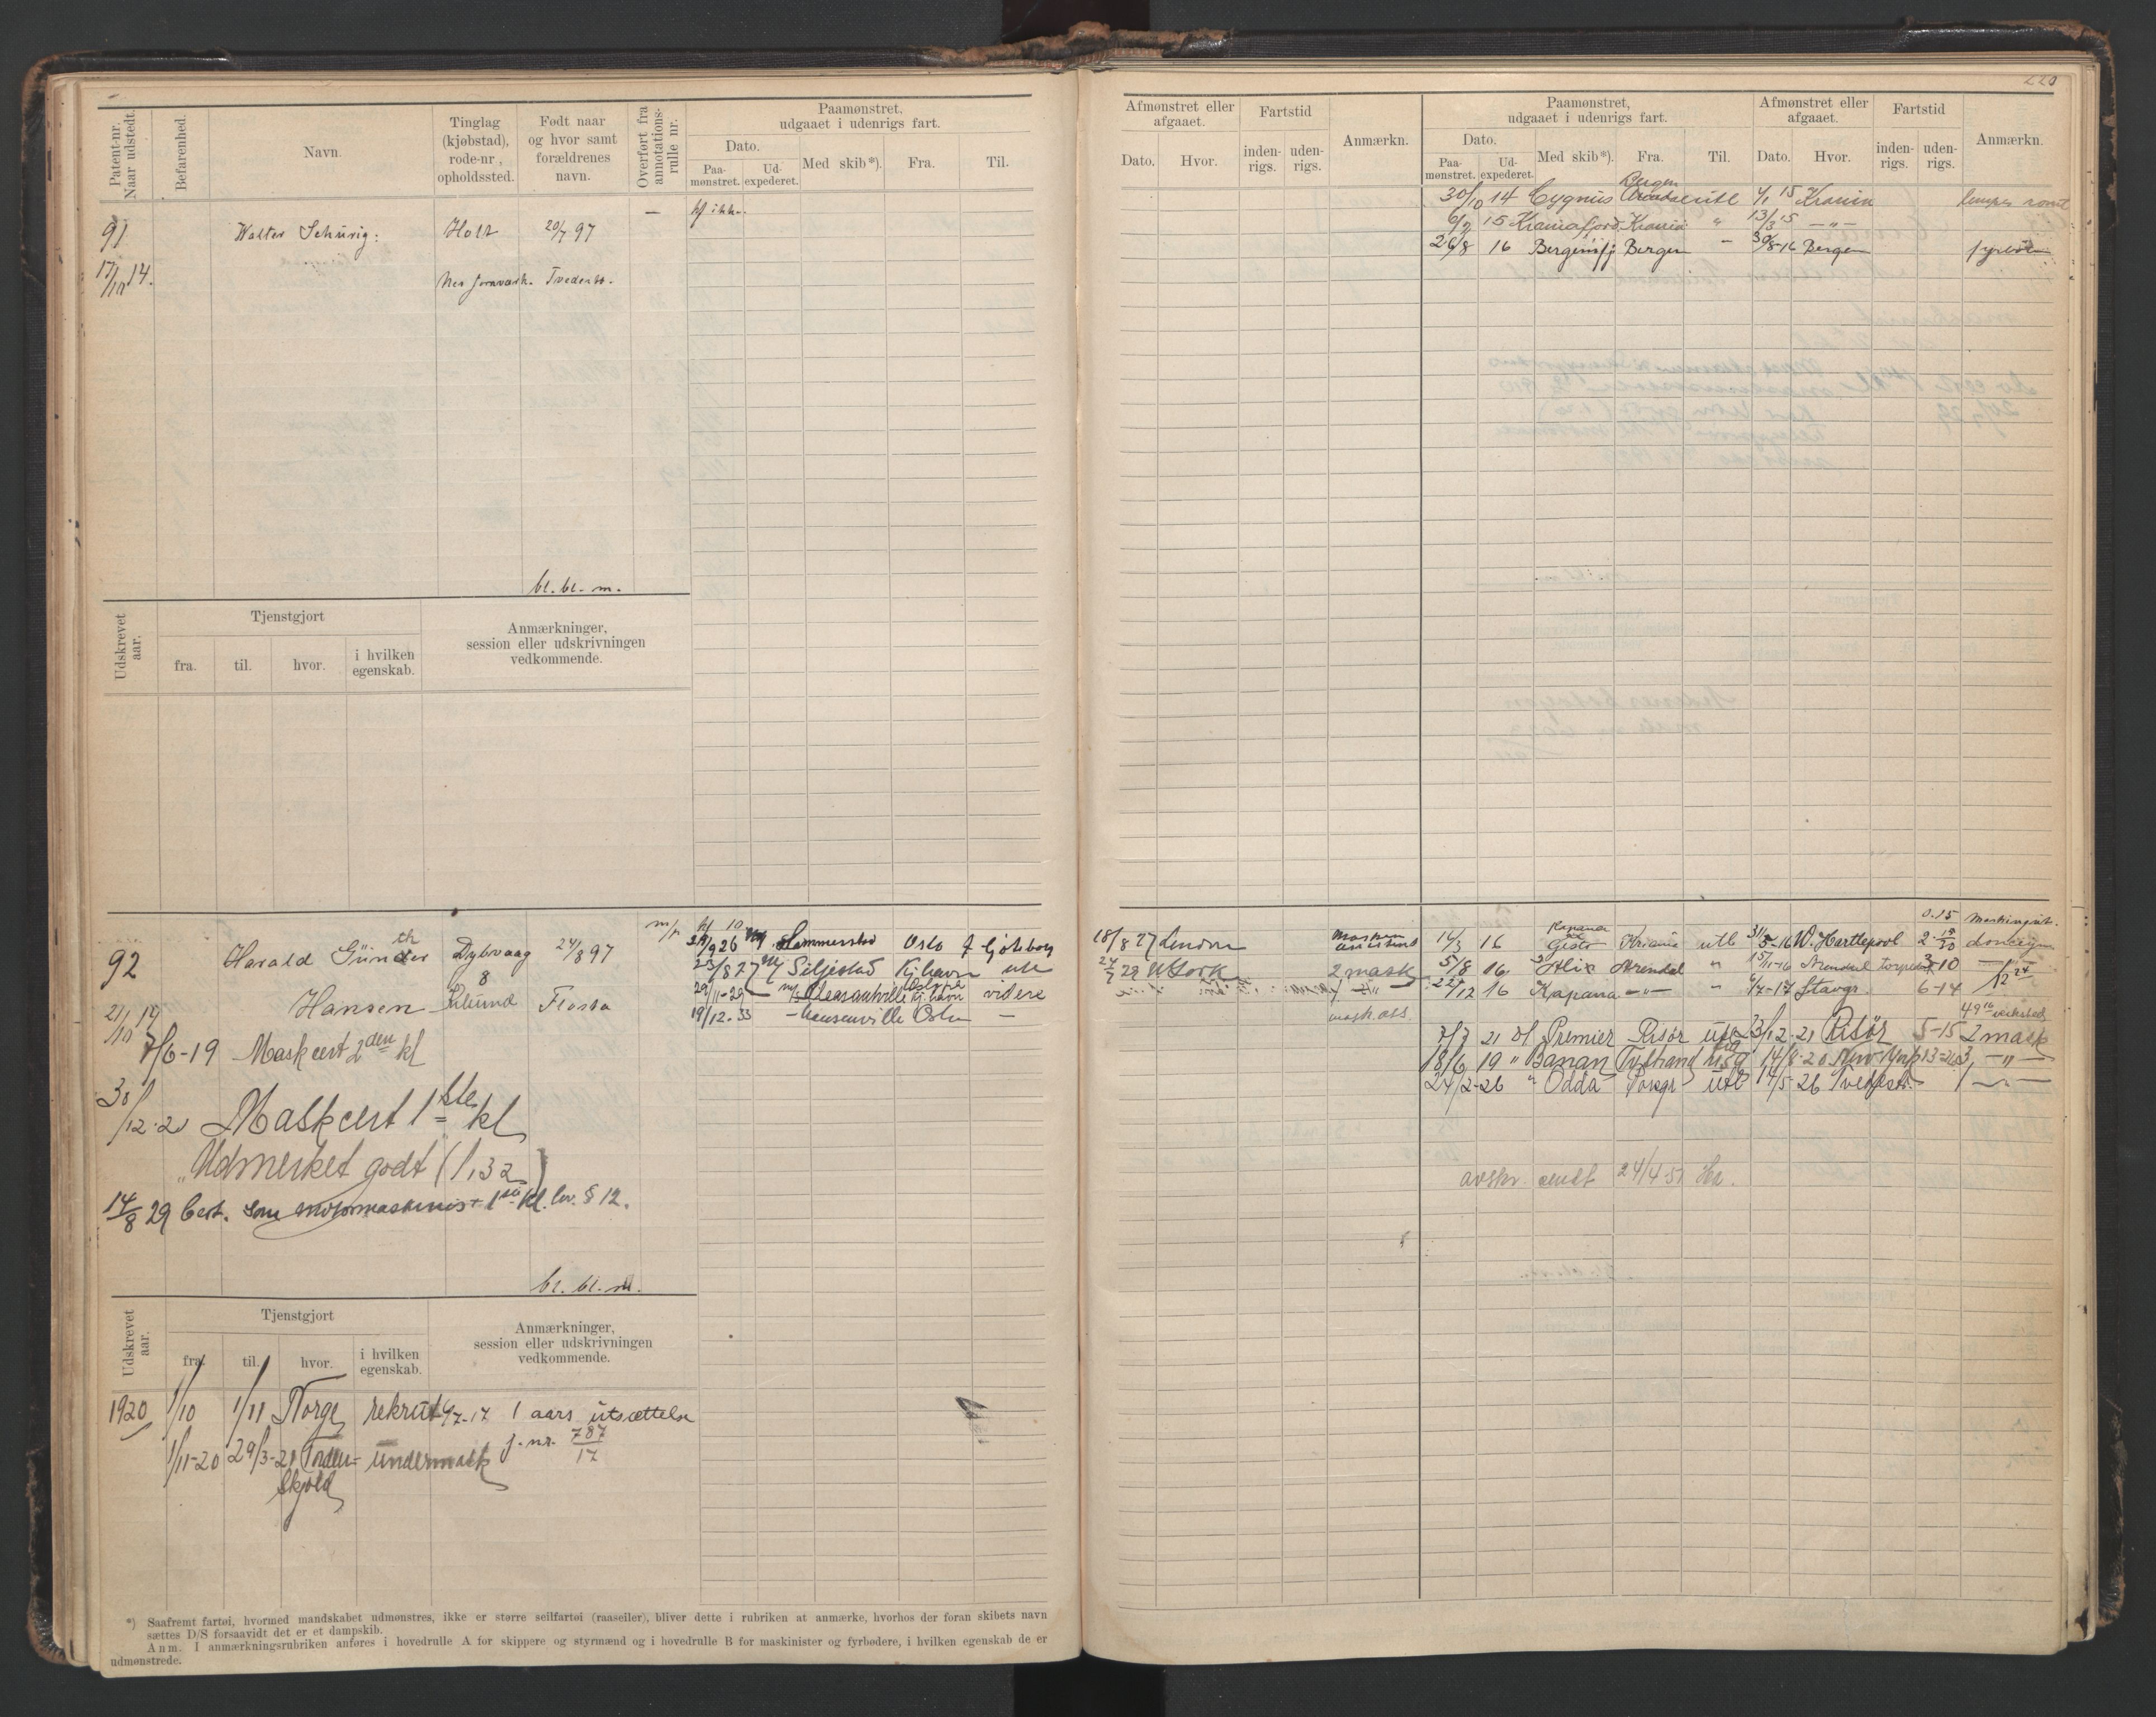 220
Patent-nr. Naar udstedt.
Befarenhed.
Navn.
Tinglag (kjøbstad), rode-nr., opholdssted.
Født naar og hvor samt forældrenes navn.
Overført fra annotations-rulle nr.
Paamønstret, udgaaet i udenrigs fart.
Dato.
Paa-mønstret.
Ud-expederet.
Med skib*).
Fra.
Til.
91
Walter Schürig.
Holt
20/7 97
—
17/10 14.
Tvedestr.
bl. bl. m.
Udskrevet aar.
Tjenstgjort
fra.
til.
hvor.
i hvilken egenskab.
Anmærkninger, session eller udskrivningen vedkommende.
92
Harald Günther
Dybvaag
24/8 97
8
Hansen
Flosta
7/6-19 Maskcert 2den kl
30/12-20 Maskcert 1ste kl
"Udmerket godt" (1,32)
14/8 29 Cert. som motormaskinist 1ste kl. lov. § 12.
bl. bl. m.
24/9 26 Hammerstad Oslo Gjøteborg
23/8 27 Siljestad Kjhavn utl
29/11-29 Pleasantville Kj.havn videre
19/12-33 Oslo —
Udskrevet aar.
Tjenstgjort
fra.
til.
hvor.
i hvilken egenskab.
Anmærkninger, session eller udskrivningen vedkommende.
1920 1/10 1/11 Norge rekrut 9/7-17 1 aars utsættelse
j.-nr. 787/17
1/11-20 29/3-21 Tordenskjold undermask
*) Saafremt fartøi, hvormed mandskabet udmønstres, ikke er større seilfartøi (raaseiler), bliver dette i rubriken at anmærke, hvorhos der foran skibets navn
sættes D/S forsaavidt det er et dampskib.
Anm. I anmærkningsrubriken anføres i hovedrulle A for skippere og styrmænd og i hovedrulle B for maskinister og fyrbødere, i hvilken egenskab de er
udmønstrede.
Afmønstret eller afgaaet.
Dato.
Hvor.
Fartstid
inden-rigs.
uden-rigs.
Anmærkn.
Paamønstret, udgaaet i udenrigs fart.
Dato.
Paa-mønstret.
Ud-expederet.
Med skib*).
Fra.
Til.
Afmønstret eller afgaaet.
Dato.
Hvor.
Fartstid
inden-rigs.
uden-rigs.
Anmærkn.
Bergen
30/10 14 Cygnus Arendal utl 4/1 15 Krania
6/2 15 Kraniafjord Krania " 13/3 15 —"—
26/8 16 Bergensfj Bergen — 30/8-16 Bergen
18/8 27 London
Maskin assistent
N York 2 mask
mask. ass.
14/3 16 Gisto Krania utl 31/5-16 W. Hartlepool
5/8 16 Alix Arendal " 15/11-16 Arendal torpedert 3-10
22/12 16 Kapana —"— " 6/7-17 Stavgr. 6-14
7/7 21 Premier Risør utl 23/12-21 Risør 5-15 2 mask
18/6 19 " Banan Tvstrand 14/8-20 New York 13-26 3 —"—
24/2-26 " Odda Porsgr utl 14/5-26 Tvedestr. 1 —"—
avskr. sendt 24/4-51 Ha.